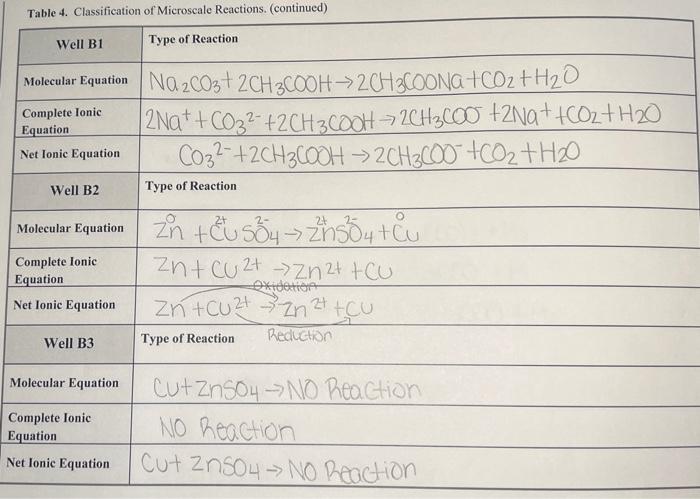 Table 4. Classification of Microscale Reactions. (continued)
Well B1 Type of Reaction
Molecular Equation Na2CO3+2CH3COOH→2CH3COONa+CO2+H2O
Complete Ionic Equation 2Na⁺+CO3²⁻+2CH3COOH→2CH3COO⁻+2Na⁺+CO2+H2O
Net Ionic Equation CO3²⁻+2CH3COOH→2CH3COO⁻+CO2+H2O
Well B2 Type of Reaction
0 2+ 2- 2+ 2- 0
Molecular Equation Zn+CuSO4→ZnSO4+Cu
Complete Ionic Equation Zn+Cu²⁺→Zn²⁺+Cu
Oxidation
Net Ionic Equation Zn+Cu²⁺→Zn²⁺+Cu
Reduction
Well B3 Type of Reaction
Molecular Equation Cu+ZnSO4→NO Reaction
Complete Ionic Equation NO Reaction
Net Ionic Equation Cu+ZnSO4→NO Reaction